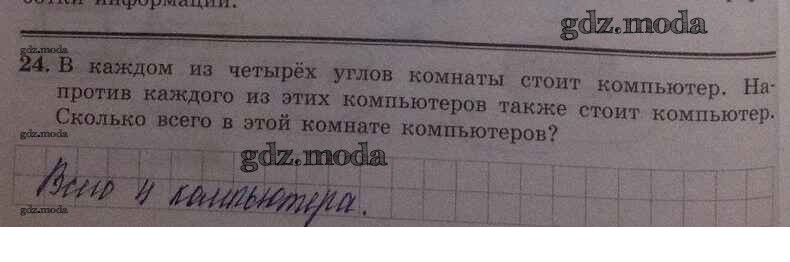 ботки информации.
gdz.moda
gdz.moda
24. В каждом из четырёх углов комнаты стоит компьютер. На-
против каждого из этих компьютеров также стоит компьютер.
Сколько всего в этой комнате компьютеров?
gdz.moda
gdz.moda
Всего 4 компьютера.
gdz.moda